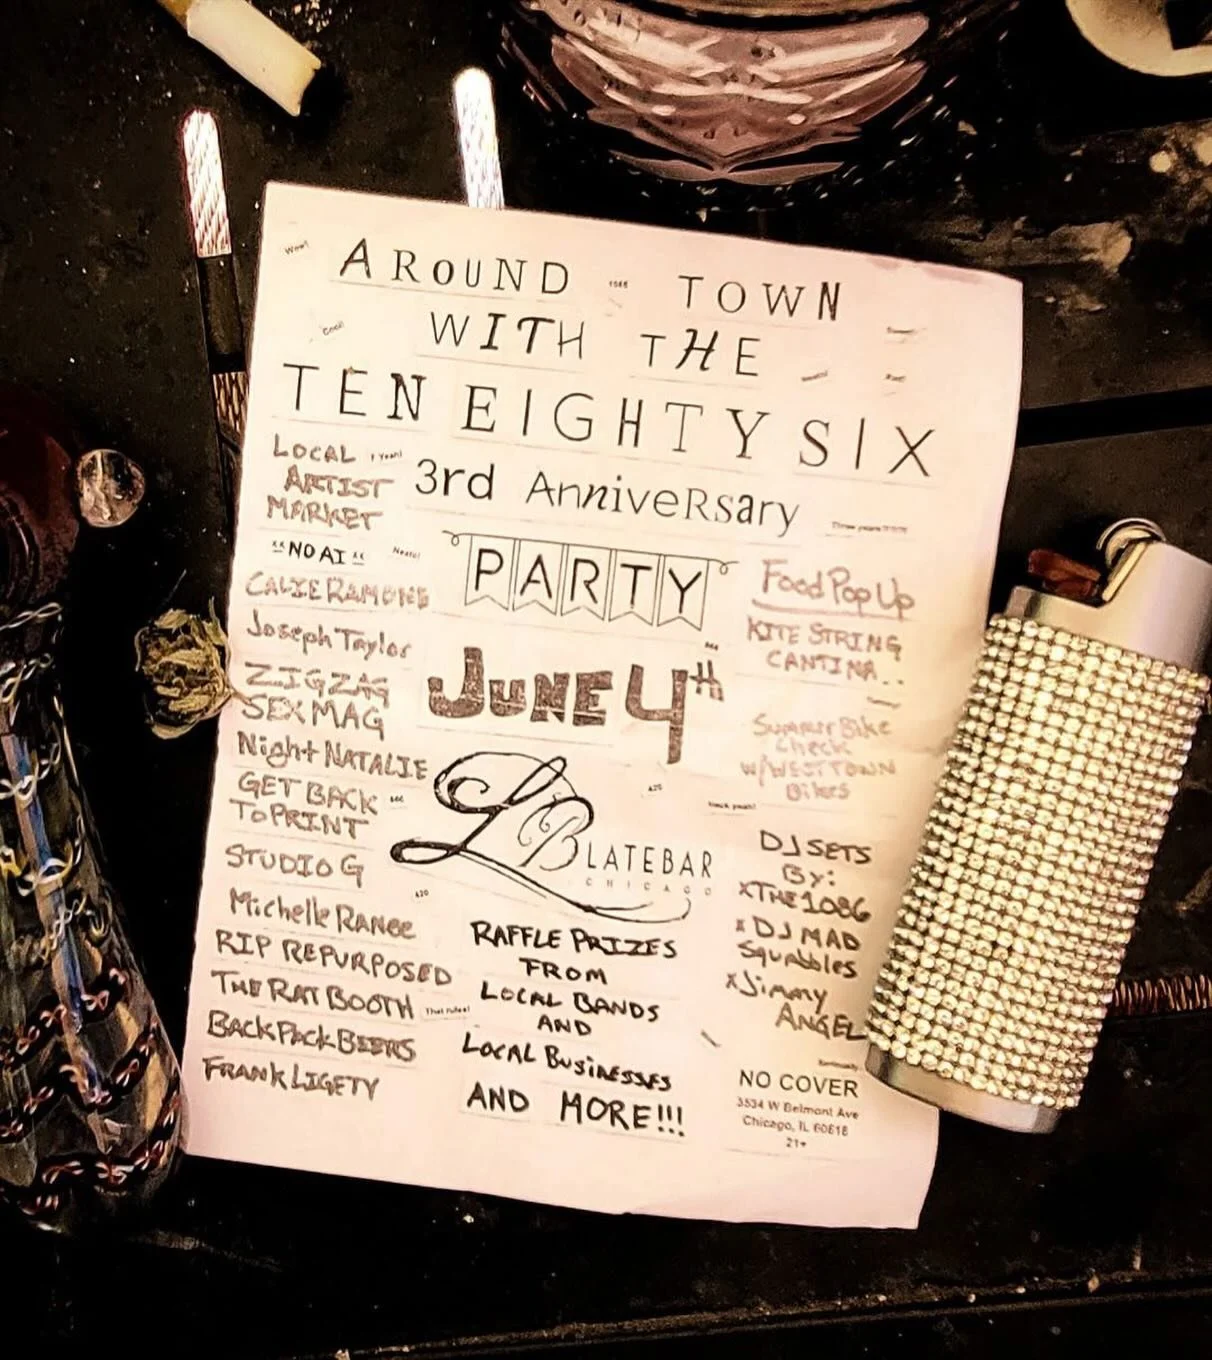 Wow!
AROUND TOWN
WITH THE
Cool!
TEN EIGHTY SIX
3rd AnniveRsary
Three years?!?!?!
PARTY
JUNE 4th
LB LATEBAR
CHICAGO
420
420
RAFFLE PRIZES
FROM
LOCAL BANDS
AND
LOCAL BusiNESSES
AND MORE!!!
LOCAL
ARTIST
MARKET
"NO AI"
Neato!
CALIE RAMONE
Joseph Taylor
ZIGZAG
SEXMAG
Night NATALIE
GET BACK
To PRINT
STUDIO G
Michelle RANEE
RIP REPURPOSED
THE RAT BOOTH
That rules!
BACKPACK BEERS
FRANK LIGETY
Food Pop Up
KITE STRING
CANTINA..
Summer Bike
Check
W/WEST TOWN
Bikes
DJ SETS
By:
xTHE 1086
xDJ MAD
Squabbles
xJimmy
ANGEL
NO COVER
3534 W Belmont Ave
Chicago, IL 60618
21+